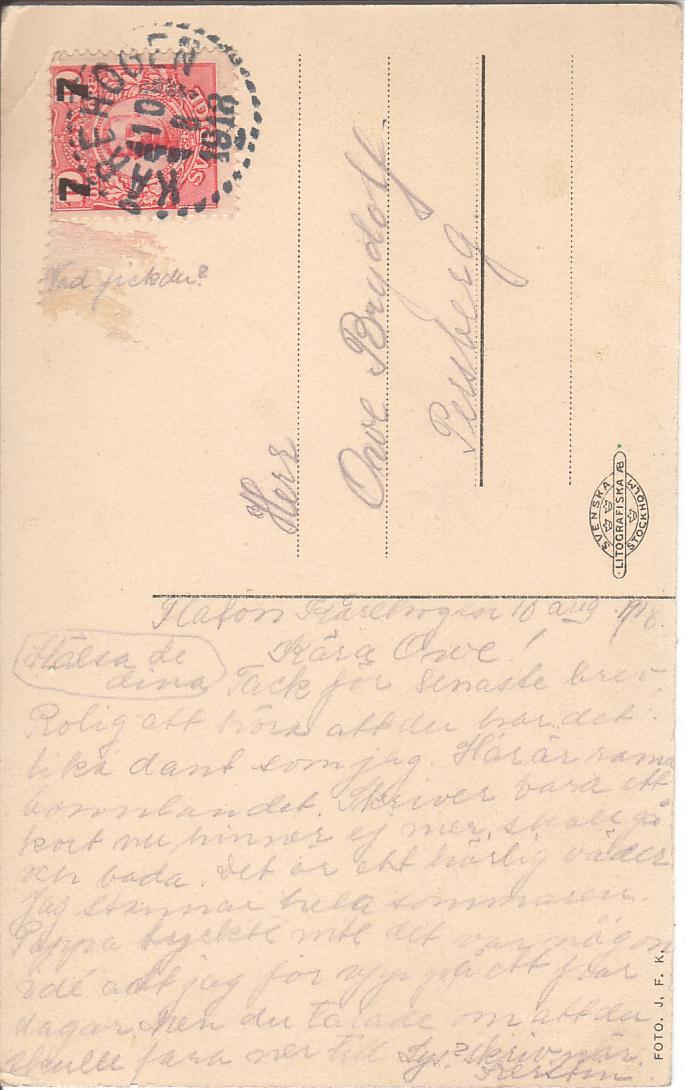 7
7
KÄRREHOGEN
10 8
1918
Vad fick du?
Herr
Owe Brydolf.
Persberg
SVENSKA
LITOGRAFISKA AB
STOCKHOLM
Kärehogen 10 aug 1918.
Hälsa de dina
Kära Owe!
Tack för senaste brev.
Rolig att höra att du har det
lika dant som jag. Här är rama
bonnlandet. Skriver bara ett
kort nu, hinner ej mer, skall gå
och bada. Det är ett härlig väder
Jag stannar hela sommaren.
Pappa tyckte inte det var någon
idé att jag för upp på ett par
dagar. Men du talade om att du
skulle fara ner till Lys? skriv när.
Kerstin
FOTO. J. F. K.